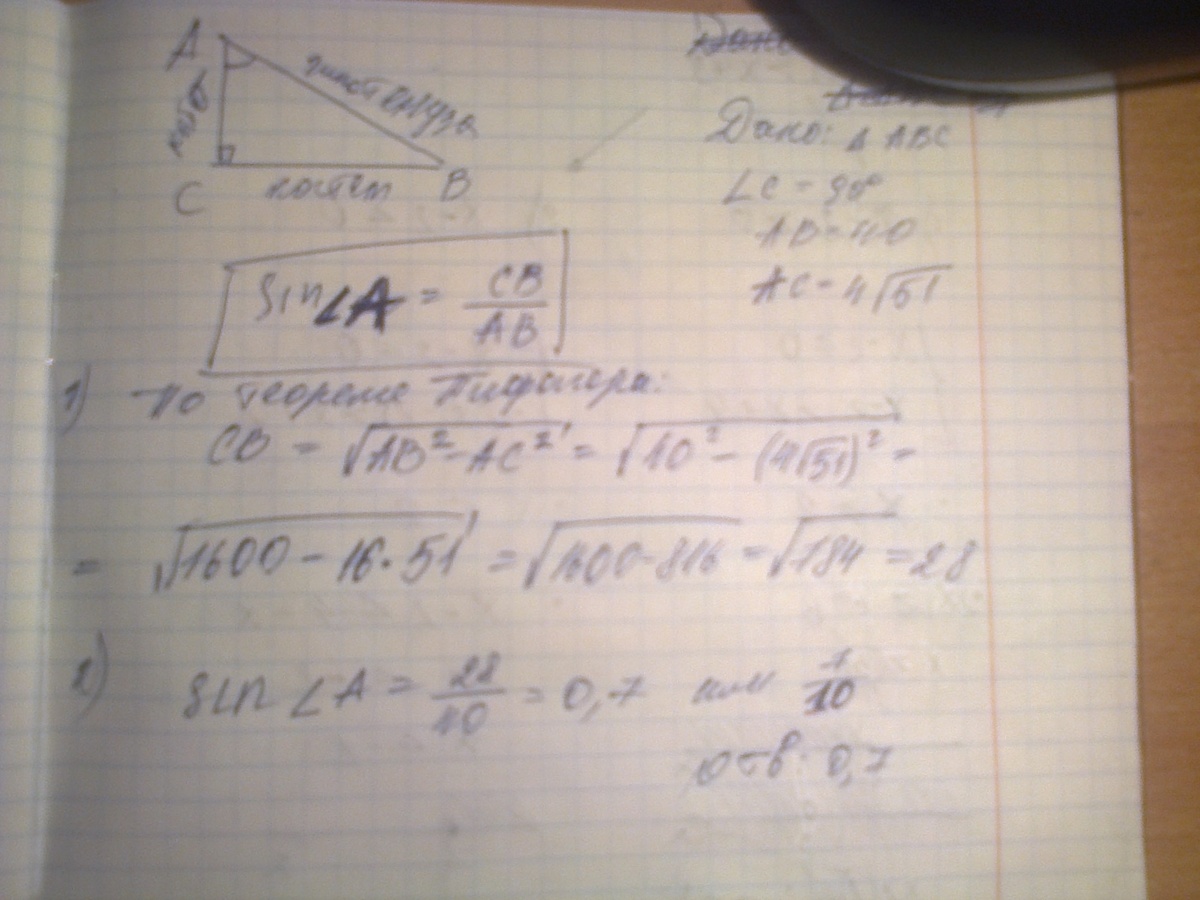 A
катет
гипотенуза
C
катет
B
Дано: Δ ABC
∠C = 90°
AB = 40
AC = 4√51
sin∠A = CB/AB
1) По теореме Пифагора:
CB = √AB² - AC² = √40² - (4√51)² =
= √1600 - 16·51 = √1600-816 = √784 = 28
2) sin ∠A = 28/40 = 0,7 или 7/10
отв: 0,7